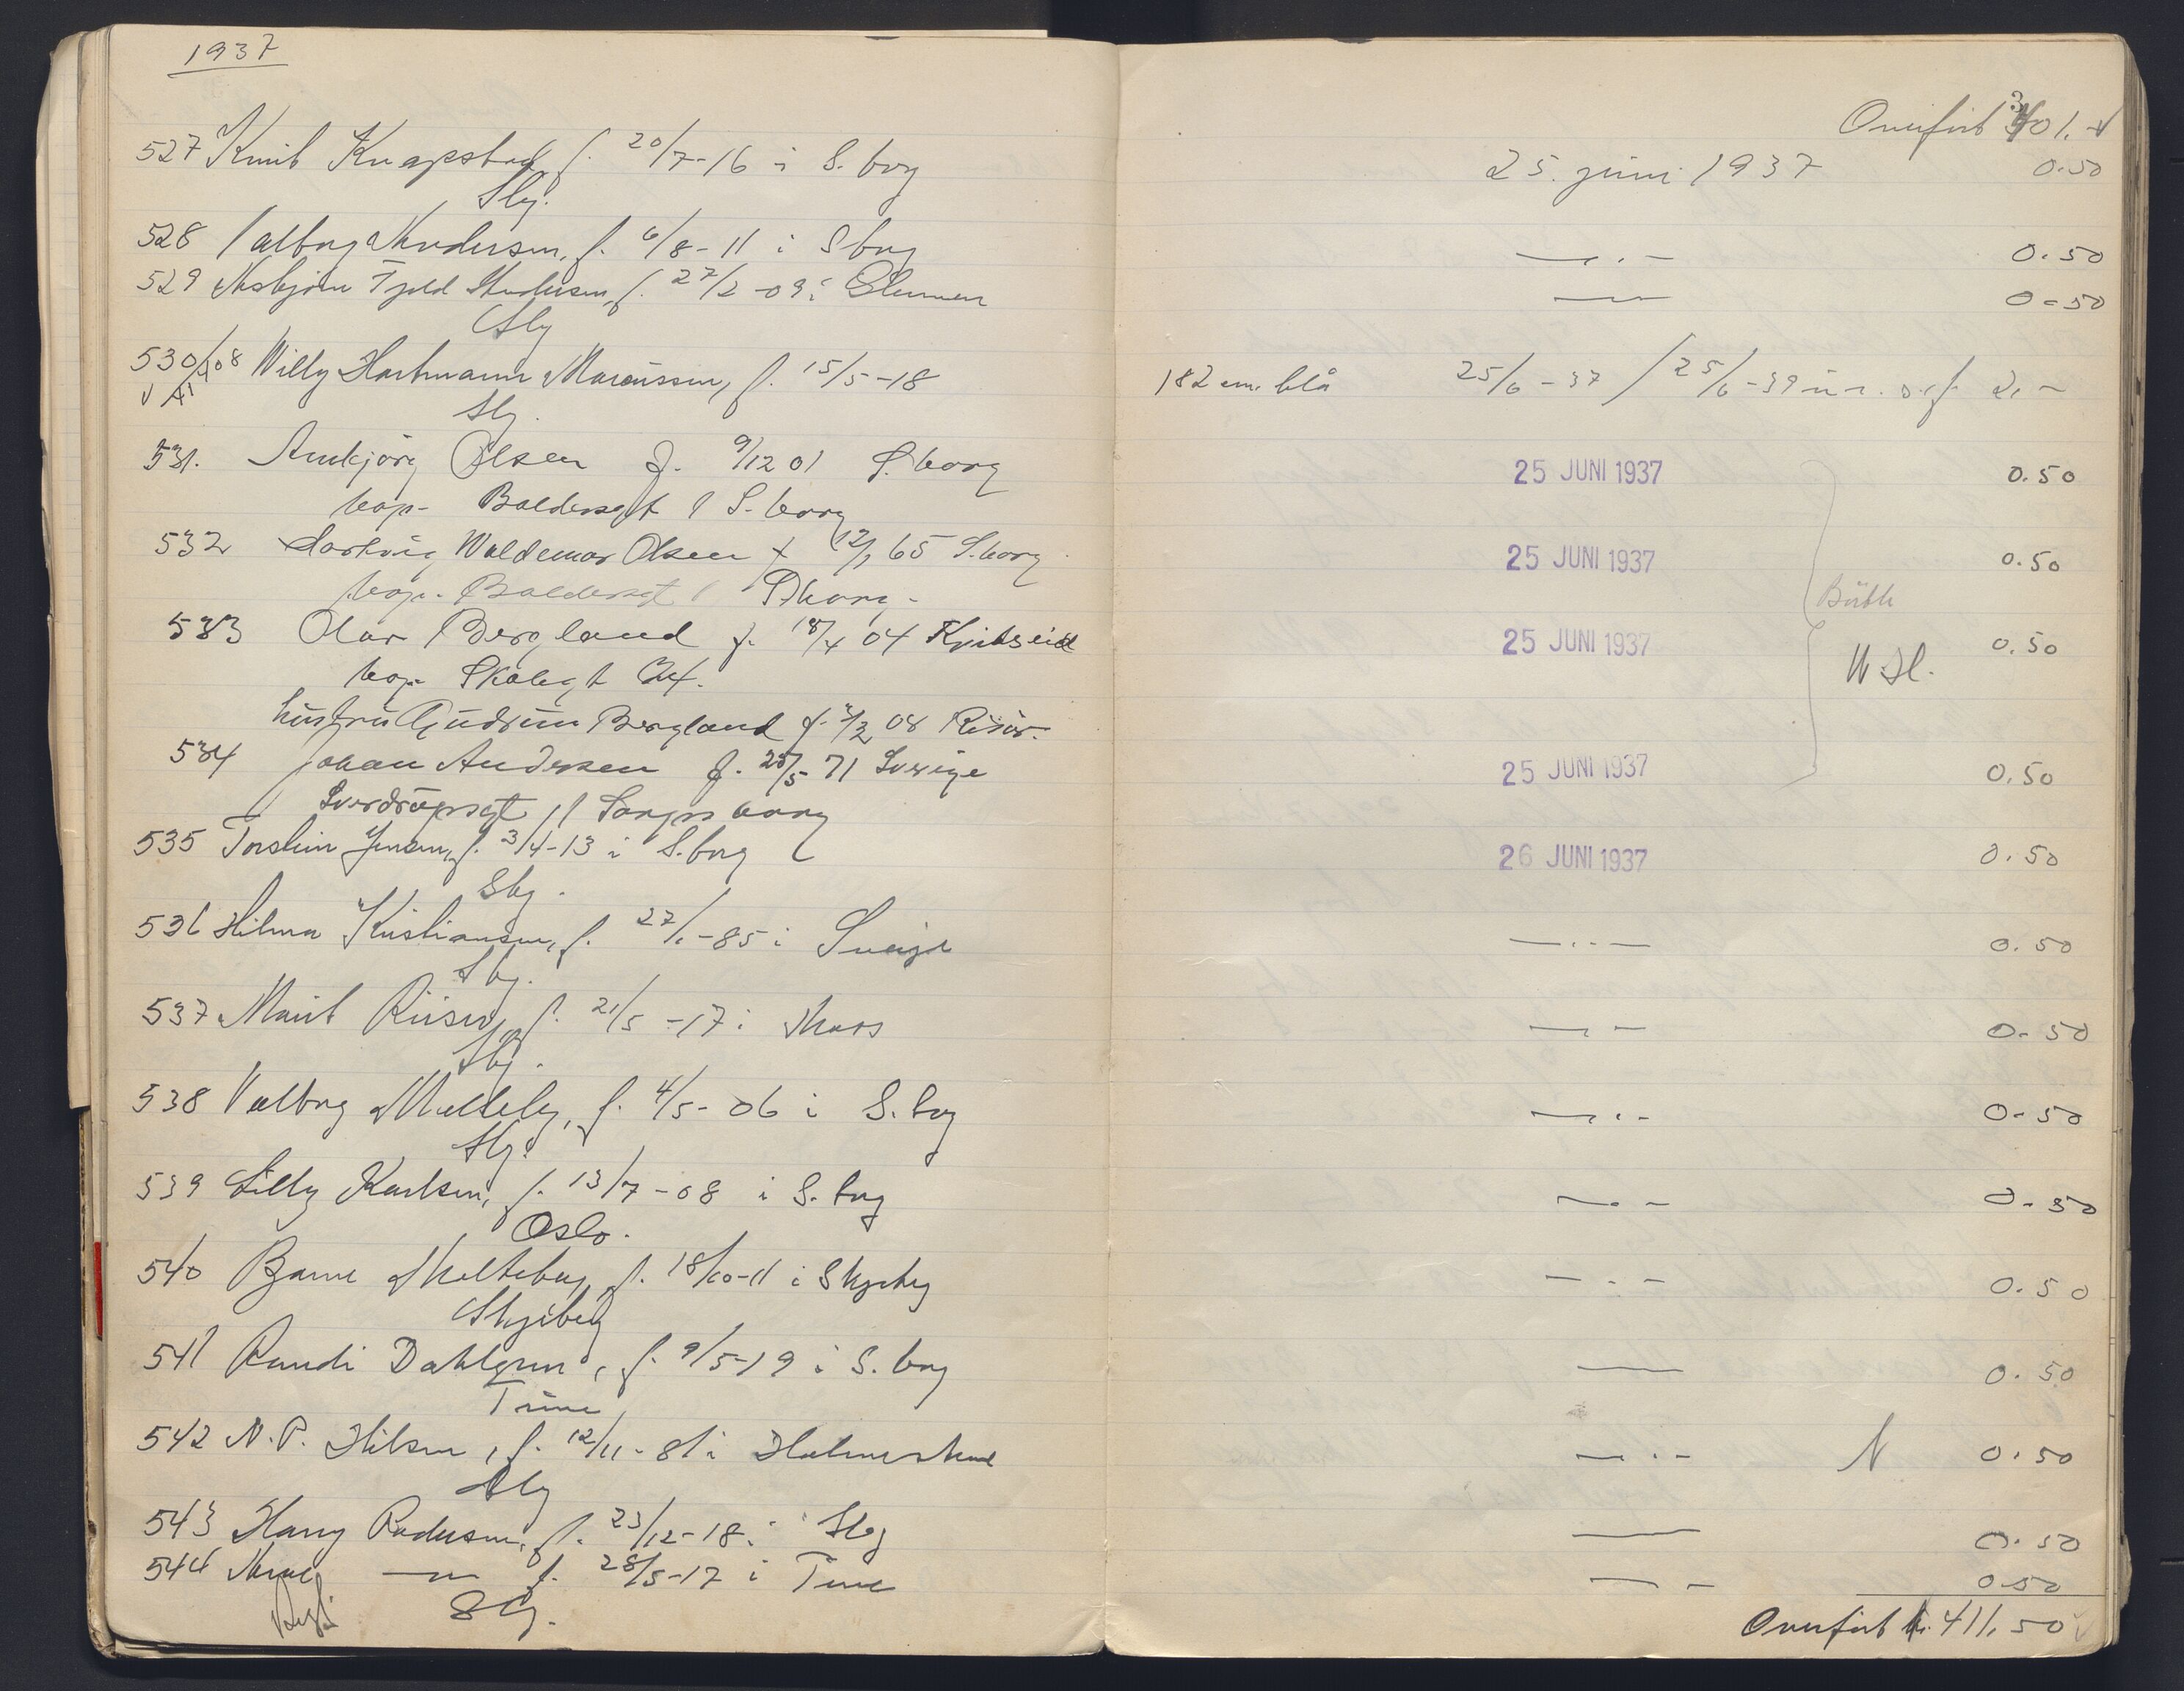 1937
527 Knut Knapstad, f. 20/7-16 i S.borg
Sbg.
528 Valborg Andersen, f. 6/8-11 i Sborg
529 Asbjørn Fjeld Andersen, f. 27/2-09 i Glemmen
Sbg
530/108 Willy Hartmann Marcussen, f. 15/5-18
Sbg.
531. Annbjørg Olsen f. 9/12 01 S.borg
bop. Baldersgt 1 S.borg
532 Hartvig Waldemar Olsen f 12/1 65 S.borg
bop. Baldersgt 1 S.borg.
533 Olav Bergland f. 18/4 04 Kviteseid
bop. Skolegt
hustru Gudrun Bergland f. 3/2 08 Risør.
534 Johan Andersen f. 25/5-71 Sverige
Sverdrupsgt 11 Sarpsborg
535 Torstein Jensen, f. 3/4-13 i S.borg
Sbg.
536 Hilma Kristiansen, f. 27/1-85 i Sverige
Sbg.
537 Marit Riiser, f. 21/5-17 i Moss
Sbg.
538 Valborg f. 4/5-06 i S.borg
Sbg.
539 Lilly Karlsen, f. 13/7-08 i S.borg
Oslo.
540 Bjarne Skolteberg, f. 18/10-11 i Skjeberg
Skjeberg
541 Randi Dahlgren, f. 9/5-19 i S.borg
Tune
542 N.P. Nilsen, f. 12/11-81 i Holmestrand
Sbg
543 Harry Pedersen, f. 23/12-18 i Sbg
544 — " — f. 28/5-17 i Tune
Sbg.
Overført 301.-
25. juni 1937 0.50
— " — 0.50
— " — 0-50
182 cm. blå 25/6-37 / 25/6-39 2,-
25 JUNI 1937 0.50
25 JUNI 1937 0.50
25 JUNI 1937 0.50
25 JUNI 1937 0.50
26 JUNI 1937 0.50
— " — 0.50
— " — 0-50
— " — 0-50
— " — 0-50
— " — 0.50
— " — 0.50
— " — N 0.50
— " — 0.50
— " — 0.50
Overført kr. 411,50